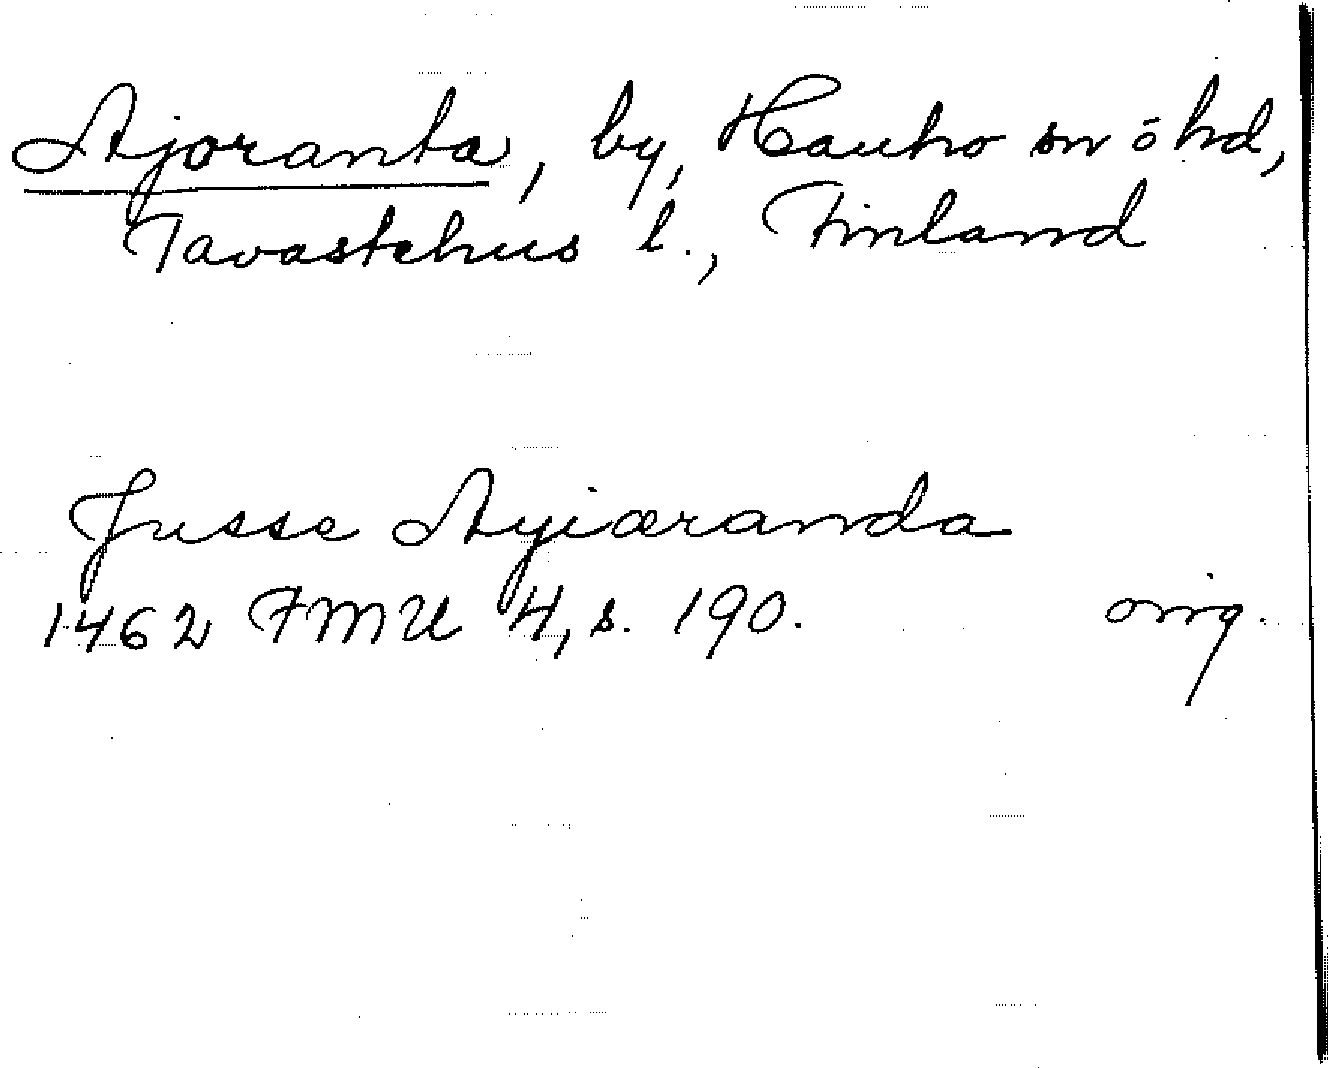 Ajoranta, by, Hauho sn o hd,
Tavastehus l., Finland
Jusse Ayiæranda
1462 FMU 4, s. 190. orig.